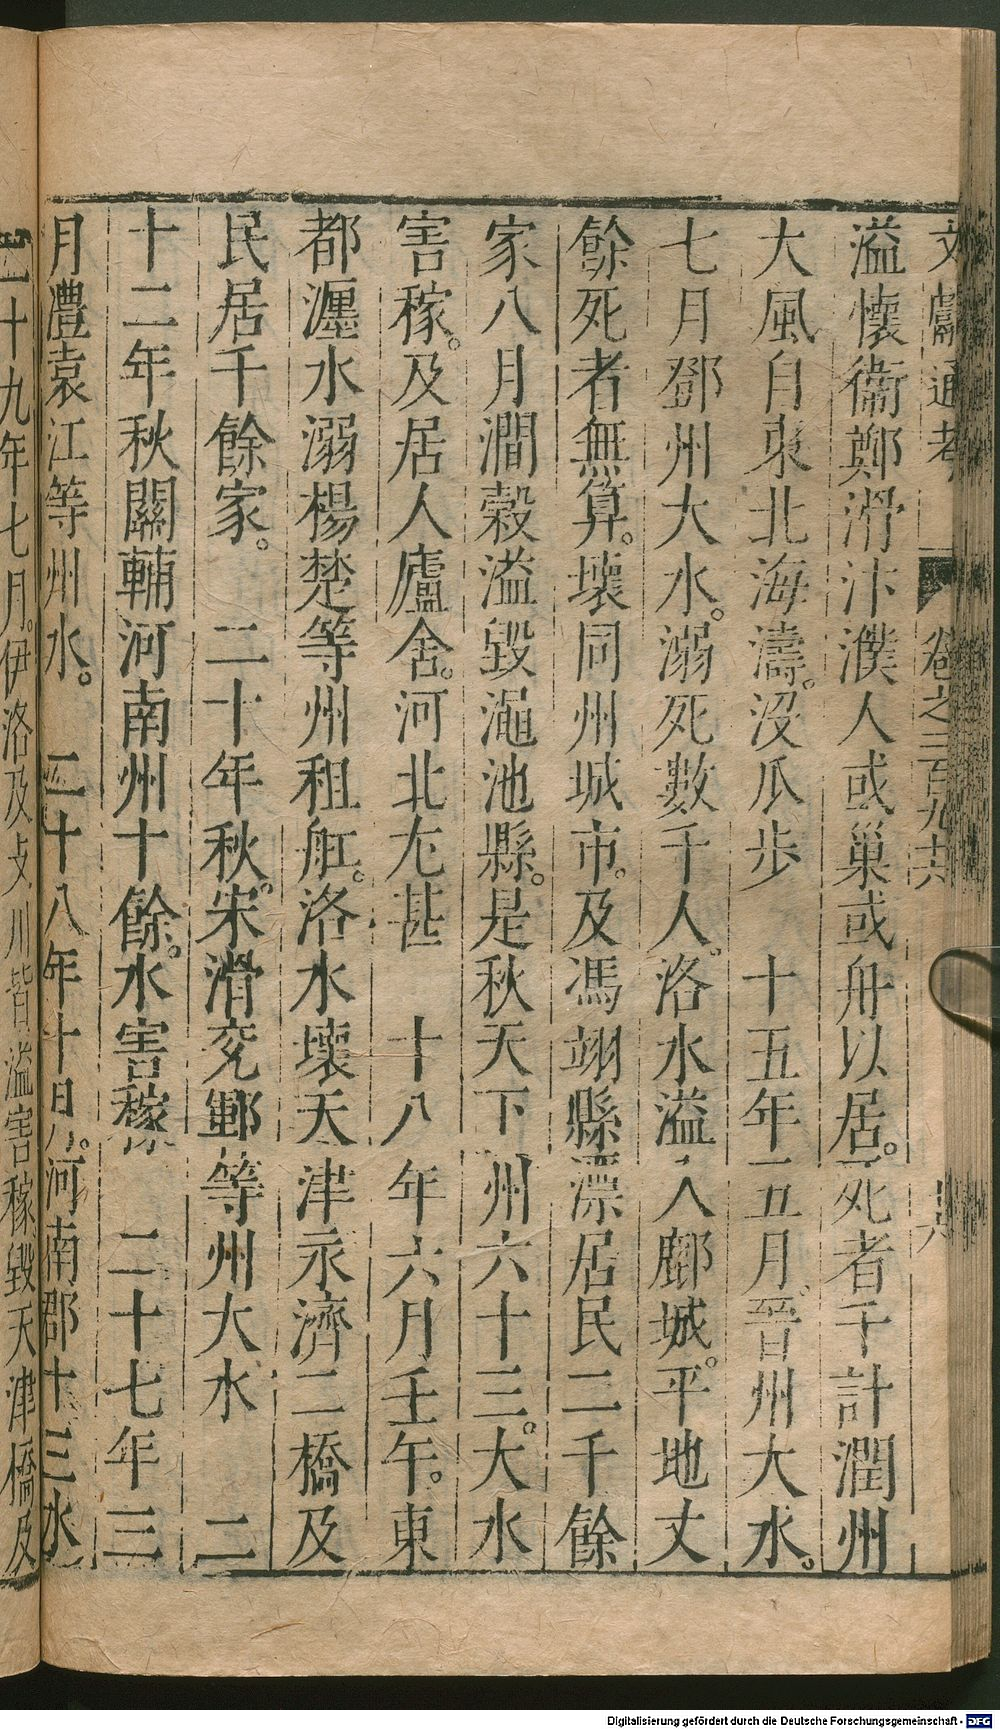 文獻通考 卷之二百九十六
溢懷衞鄭滑汴濮人或巢或舟以居。死者千計潤州
大風自東北海濤。沒瓜步 十五年五月晉州大水。
七月鄧州大水。溺死數千人。洛水溢入鄜城。平地丈
餘死者無算。壞同州城市。及馮翊縣漂居民二千餘
家八月澗穀溢毀澠池縣。是秋天下州六十三。大水
害稼。及居人廬舍。河北尤甚 十八年六月壬午。東
都瀍水溺楊楚等州租舡。洛水壞天津永濟二橋及
民居千餘家。 二十年秋。宋滑兗鄆等州大水 二
十二年秋關輔河南州十餘。水害稼 二十七年三
月澧袁江等州水。 二十八年十月。河南郡十三水
二十九年七月。伊洛及支川皆溢害稼毀天津橋及
Digitalisierung gefördert durch die Deutsche Forschungsgemeinschaft - DFG